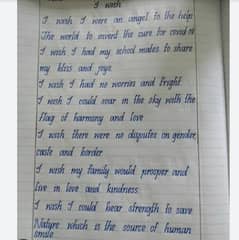 I wish
I wish I were an angel to the help
The world to invent the cure for covid 19
I wish I had my school mates to share
my bliss and joys.
I wish I had no worries and fright.
I wish I could soar in the sky with the
flag of harmony and love
I wish there were no disputes on gender,
caste and border
I wish my family would prosper and
live in love and kindness.
I wish I could bear strength to save
Nature which is the source of human
smile